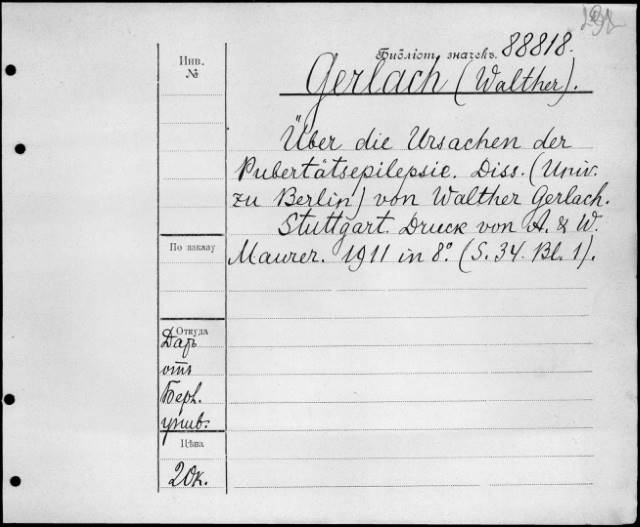 Библіот. значекъ. 88818.
Инв.
№
Gerlach (Walther).
Über die Ursachen der
Pubertätsepilepsie. Diss. (Univ.
zu Berlin) von Walther Gerlach.
Stuttgart. Druck von A. & W.
Maurer. 1911 in 8°. (S. 34. Bl. 1).
По заказу
Откуда
Даръ
отъ
Берл.
унив.
Цѣна
20к.